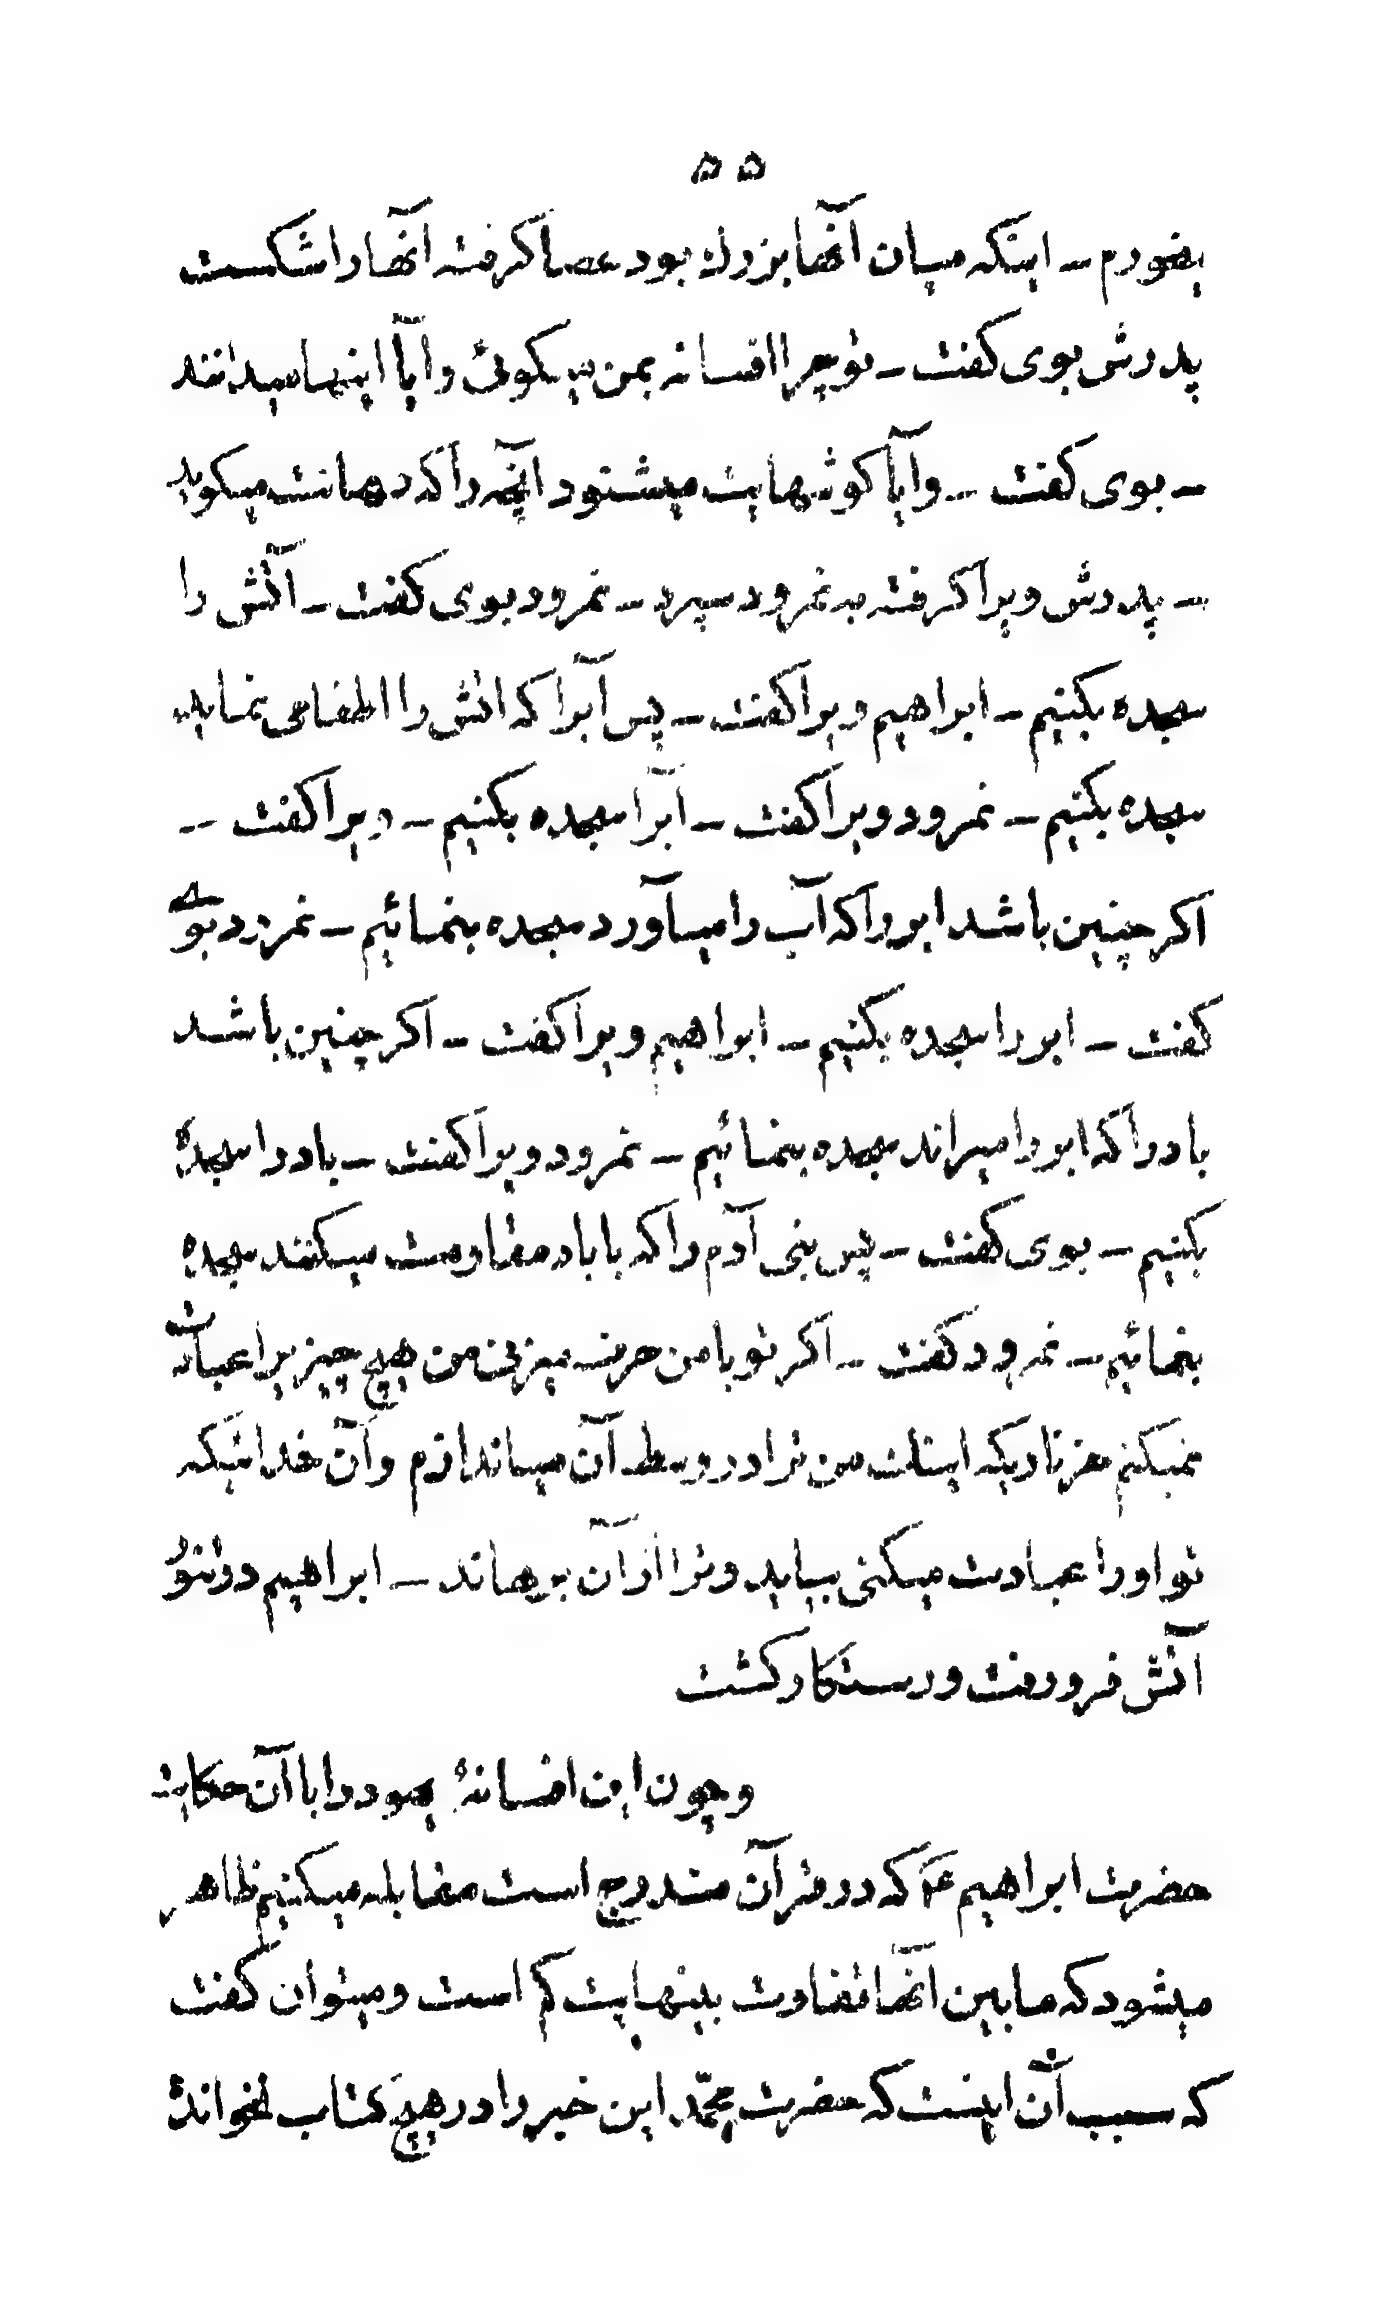 ۵۵
بخورم ــ اینکه میان آنها بزرك بود عصا کرفته آنها را شکست
پدرش بوی کفت ــ تو چرا افسانه بمن میکوئی و آیا اینها میدانند
ــ بوی کفت ــ و آیا کوشهایت میشنود آنچه را که دهانت میکوید
ــ پدرش ویرا کرفته به نمرود سپرد ــ نمرود بوی کفت ــ آتش را
سجده بکنیم ــ ابراهیم ویرا کفت ــ پس آبرا که اتش را اطفا می نماید
سجده بکنیم ــ نمرود ویرا کفت ــ آبرا سجده بکنیم ــ ویرا کفت ــ
اکر چنین باشد ابر را که آب را میآورد سجده بنمائیم ــ نمرود بوی
کفت ــ ابر را سجده بکنیم ــ ابراهیم ویرا کفت ــ اکر چنین باشد
باد را که ابر را میراند سجده بنمائیم ــ نمرود ویرا کفت ــ باد را سجده
بکنیم ــ بوی کفت ــ پس بنی آدم را که با باد مقاومت میکنند سجده
بنمائیم ــ نمرود کفت ــ اکر تو با من حرف میزنی من هیچ چیز برا عبادت
نمیکنم جز نار اینك من ترا در وسط آن میاندازم و آن خدائیکه
تو او را عبادت میکنی بیاید و ترا از آن برهاند ــ ابراهیم در تنور
آتش فرو رفت و رستکار کشت
و چون این افسانهٔ یهود را با آن حکایت
حضرت ابراهیم ع که در قرآن مندرج است مقابله میکنیم ظاهر
میشود که ما بین انها تفاوت بینهایت کم است و میتوان کفت
که سبب آن اینست که حضرت محمّد این خبر را در هیچ کتاب نخوانده